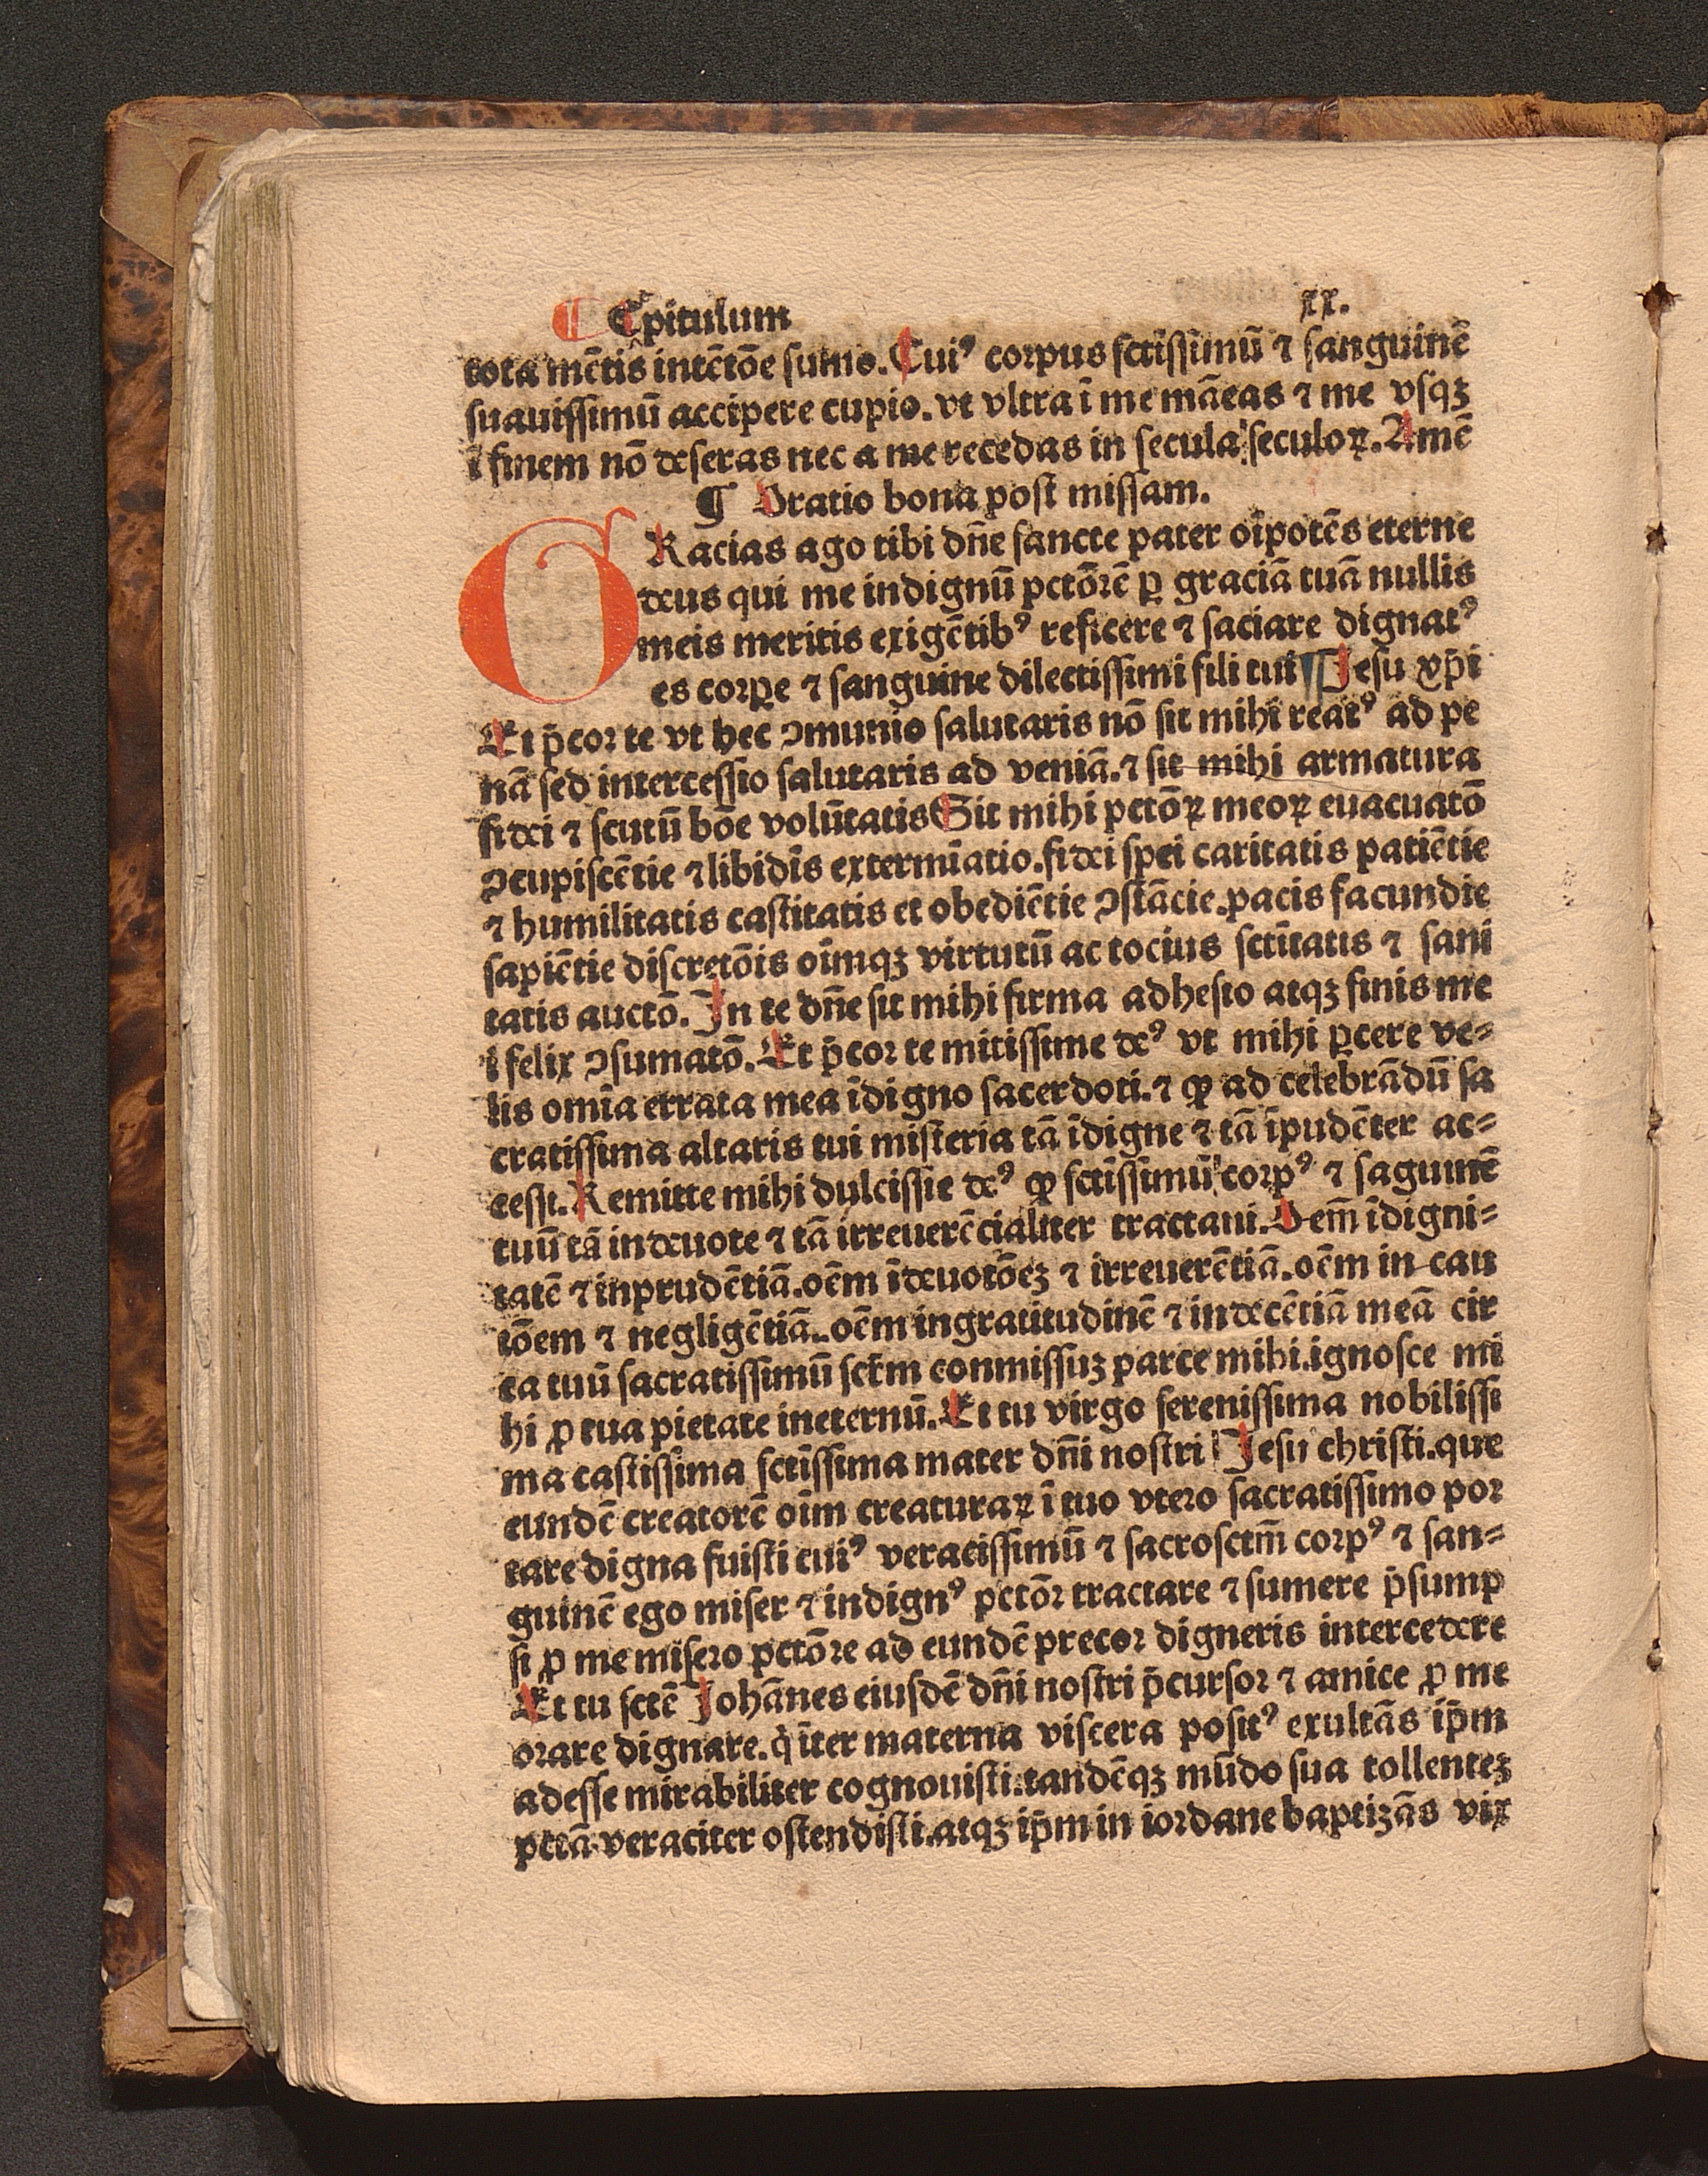 ¶ Cpitulum xx.
tota mētis intētōe sumo. Cuiꝰ corpus sctīssimū ⁊ sanguinē
suauissimū accipere cupio. vt vltra ī me māeas ⁊ me vsqꝫ
ī finem nō deseras nec a me recedas in secula seculoꝝ. Amē
¶ Oratio bona post missam.
GRacias ago tibi dn̄e sancte pater oīpotēs eterne
deus qui me indignū pctōrē ꝑ graciā tuā nullis
meis meritis exigētibꝰ reficere ⁊ saciare dignatꝰ
es corꝑe ⁊ sanguine dilectissimi fili tui Jesu xp̄i
Et p̄cor te vt hec ꝯmunio salutaris nō sit mihi reatꝰ ad pe
nā sed intercessio salutaris ad veniā. ⁊ sit mihi armatura
fidei ⁊ scutū bōe volūtatis Sit mihi pctōꝝ meoꝝ euacuatō
ꝯcupiscētie ⁊ libidīs extermīatio. fidei spei caritatis patiētie
⁊ humilitatis castitatis et obediētie ꝯstācie. pacis facundie
sapiētie discretōis oīmqꝫ virtutū ac tocius sctītatis ⁊ sani
tatis auctō. In te dn̄e sit mihi firma adhesio atqꝫ finis me
i felix ꝯsumatō. Et p̄cor te mitissime deꝰ vt mihi ꝑcere ve⸗
lis omīa errata mea īdigno sacerdoti. ⁊ ꝙ ad celebrādū sa
cratissima altaris tui misteria tā īdigne ⁊ tā īpudēter ac⸗
cessi. Remitte mihi dulcissie deꝰ ꝙ sctīssimū corpꝰ ⁊ saguinē
tuū tā indeuote ⁊ tā irreuerēcialiter tractaui. Oem̄ īdigni⸗
tatē ⁊ inprudētiā. oēm īdeuotōeꝫ ⁊ irreuerētiā. oēm in cau
tōem ⁊ negligētiā. oēm ingratitudinē ⁊ indecētiā meā cir
ca tuū sacratissimū sctm̄ conmissuꝫ parce mihi. ignosce mi
hi ꝓ tua pietate ineternū. Et tu virgo serenissima nobilissi
ma castissima sctīssima mater dn̄i nostri Jesu christi. que
eundē creatorē oīm creaturaꝝ ī tuo vtero sacratissimo por
tare digna fuisti cuiꝰ veracissimū ⁊ sacrosctm̄ corpꝰ ⁊ san⸗
guinē ego miser ⁊ indignꝰ pctōr tractare ⁊ sumere p̄sump
si ꝓ me misero pctōre ad eundē precor digneris intercedere
Et tu sctē Johānes eiusdē dn̄i nostri p̄cursor ⁊ amice ꝓ me
orare dignare. q̇ īter materna viscera positꝰ exultās ip̄m
adesse mirabiliter cognouisti. tandēqꝫ mūdo sua tollenteꝫ
pctā veraciter ostendisti. atqꝫ ip̄m in iordane baptizās vix